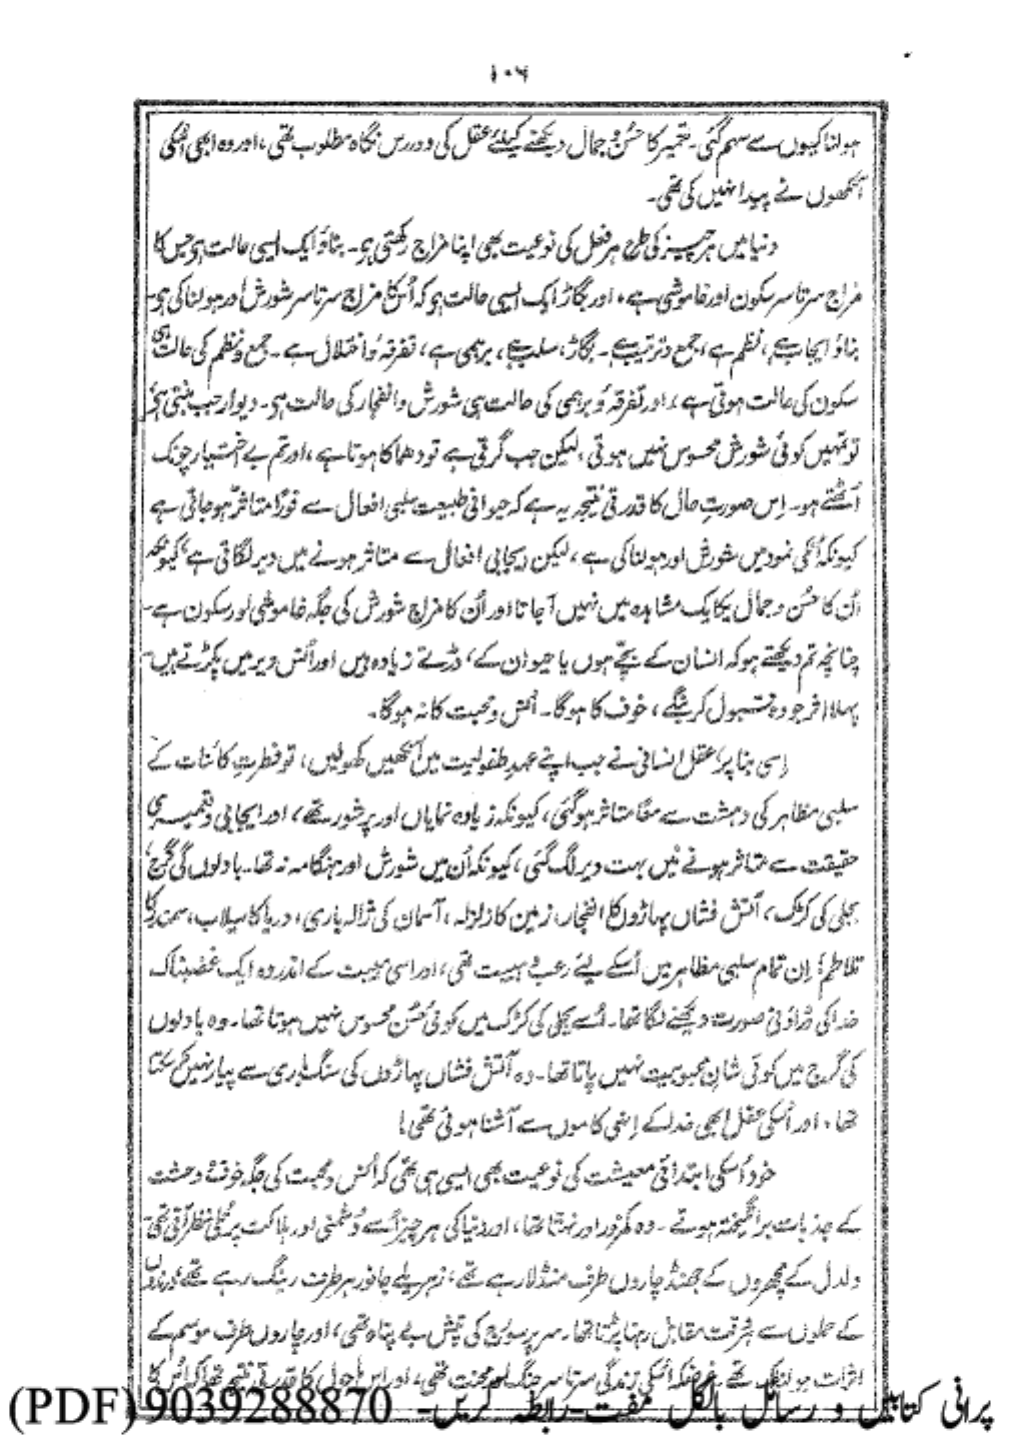 ۱۰۶
ہولناکیوں سے سہم گئی۔ تعمیر کا حُسن و جمال دیکھنے کیلئے عقل کی دوررس نگاہ مطلوب تھی، اور وہ ابھی اُسکی
آنکھوں نے پیدا نہیں کی تھی۔
دنیا میں ہر چیز کی طرح ہر فعل کی نوعیت بھی اپنا مزاج رکھتی ہی۔ بناؤ ایک ایسی حالت ہی جس کا
مزاج سرتا سر سکون اور خاموشی ہے، اور بگاڑ ایک ایسی حالت ہو کہ اُس کا مزاج سرتا سر شورش اور ہولناکی ہی۔
بناؤ ایجاب ہے، نظم ہے، جمع و ترتیب ہے۔ بگاڑ، سلب ہے، برہمی ہے، تفرقہ و اختلال ہے۔ جمع و نظم کی حالت ہی
سکون کی حالت ہوتی ہے، اور تفرقہ و برہمی کی حالت ہی شورش و انفجار کی حالت ہی۔ دیوار جب بنتی ہی،
تو تمہیں کوئی شورش محسوس نہیں ہوتی، لیکن جب گرتی ہے تو دھماکا ہوتا ہے، اور تم بے اختیار چونک
اُٹھتے ہو۔ اِس صورتِ حال کا قدرتی نتیجہ یہ ہے کہ حیوانی طبیعت سلبی افعال سے فوراً متاثر ہو جاتی ہے
کیونکہ اُنکی نمود میں شورش اور ہولناکی ہے، لیکن ایجابی افعال سے متاثر ہونے میں دیر لگاتی ہے، کیونکہ
اُن کا حُسن و جمال یکایک مشاہدہ میں نہیں آجاتا اور اُن کا مزاج شورش کی جگہ خاموشی اور سکون ہے۔
چنانچہ تم دیکھتے ہو کہ انسان کے بچے ہوں یا حیوان کے، ڈرتے زیادہ ہیں اور اُنس دیر میں پکڑتے ہیں۔
پہلا اثر جو وہ قبول کرینگے، خوف کا ہوگا۔ اُنس و محبت کا نہ ہوگا۔
اِسی بنا پر، عقلِ انسانی نے جب اپنے عہدِ طفولیت میں آنکھیں کھولیں، تو فطرتِ کائنات کے
سلبی مظاہر کی دہشت سے معاً متاثر ہو گئی، کیونکہ زیادہ نمایاں اور پرشور تھے، اور ایجابی و تعمیری
حقیقت سے متاثر ہونے میں بہت دیر لگ گئی، کیونکہ اُن میں شورش اور ہنگامہ نہ تھا۔ بادلوں کی گرج،
بجلی کی کڑک، آتش فشاں پہاڑوں کا انفجار، زمین کا زلزلہ، آسمان کی ژالہ باری، دریا کا سیلاب، سمندر کا
تلاطم؛ اِن تمام سلبی مظاہر میں اُسکے لیئے رعب و ہیبت تھی، اور اسی ہیبت کے اندر وہ ایک غضبناک
خدا کی ڈراؤنی صورت دیکھنے لگا تھا۔ اُسے بجلی کی کڑک میں کوئی حُسن محسوس نہیں ہوتا تھا۔ وہ بادلوں
کی گرج میں کوئی شانِ محبوبیت نہیں پاتا تھا۔ وہ آتش فشاں پہاڑوں کی سنگباری سے پیار نہیں کر سکتا
تھا، اور اُسکی عقل ابھی خدا کے اِنہی کاموں سے آشنا ہوئی تھی!
خود اُسکی ابتدائی معیشت کی نوعیت بھی ایسی ہی تھی کہ اُنس و محبت کی جگہ خوف و وحشت
کے جذبات برانگیختہ ہوتے۔ وہ کمزور اور نہتا تھا، اور دنیا کی ہر چیز اُسے دُشمنی اور ہلاکت پر تُلی نظر آتی تھی۔
دلدل کے مچھروں کے جھنڈ چاروں طرف منڈلا رہے تھے، زہریلے جانور ہر طرف رینگ رہے تھے، درندوں
کے حملوں سے ہر وقت مقابل رہنا پڑتا تھا۔ سر پر سورج کی تپش بے پناہ تھی، اور چاروں طرف موسم کے
اثرات ہولناک تھے غرضکہ اُسکی زندگی سرتا سر جنگ اور محنت تھی، اور اِس ماحول کا قدرتی نتیجہ تھا کہ اُس کا
پرانی کتابیں و رسائل بالکل مفت۔ رابطہ کریں۔ 9039288870 (PDF)